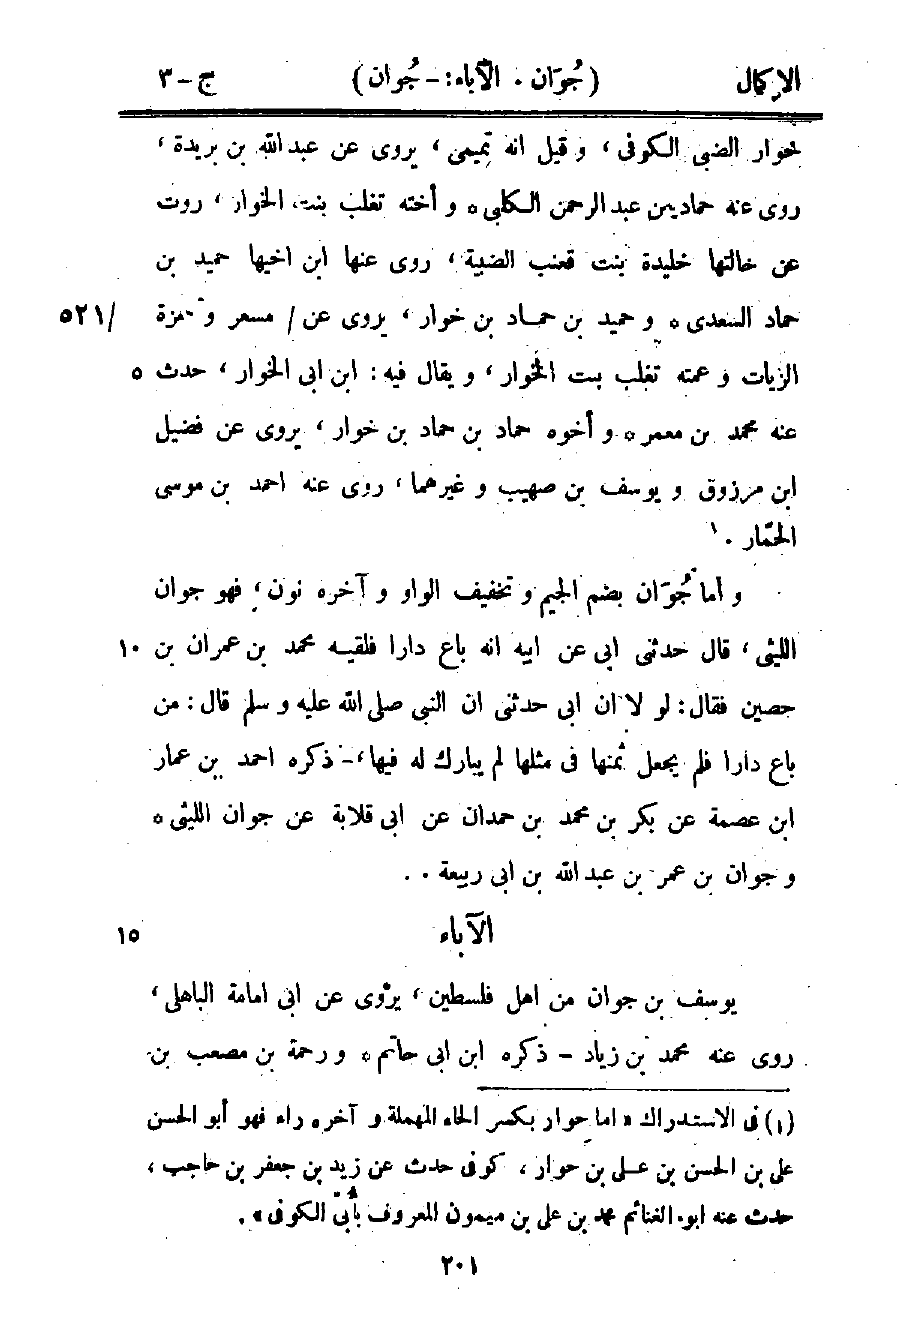 الإكمال (جُوَان . الآباء: - جُوان) ج - ٣
خوار الضبي الكوفى ، و قيل انه تميمى ، يروى عن عبد الله بن بريدة ،
روى عنه حماد بن عبد الرحمن الكلبى ٥ و أخته تغلب بنت الخوار ، روت
عن خالتها خليدة بنت قعنب الضبية ، روى عنها ابن اخيها حميد بن
حماد السعدى ٥ و حميد بن حماد بن خوار ، يروى عن / مسعر و حمزة /٥٢١
الزيات و عمته تغلب بنت الخوار ، و يقال فيه : ابن ابى الخوار ، حدث ٥
عنه محمد بن معمر ٥ و أخوه حماد بن حماد بن خوار ، يروى عن فضيل
ابن مرزوق و يوسف بن صهيب و غيرهما ، روى عنه احمد بن موسى
الحمّار . ١
و أما جُوَان بضم الجيم و تخفيف الواو و آخره نون ، فهو جوان
الليثى ، قال حدثنى ابى عن ابيه انه باع دارا فلقيه محمد بن عمران بن ١٠
حصين فقال : لو لا ان ابى حدثنى ان النبى صلى الله عليه و سلم قال : من
باع دارا فلم يجعل ثمنها فى مثلها لم يبارك له فيها ، - ذكره احمد بن عمار
ابن عصمة عن بكر بن محمد بن حمدان عن ابى قلابة عن جوان الليثى ٥
و جوان بن عمر بن عبد الله بن ابى ربيعة . .
الآباء ١٥
يوسف بن جوان من اهل فلسطين ، يروى عن ابى امامة الباهلى ،
روى عنه محمد بن زياد - ذكره ابن ابى حاتم ٥ و رحمة بن مصعب بن
(١) فى الاستدراك « اما حوار بكسر الحاء المهملة و آخره راء فهو أبو الحسن
على بن الحسن بن على بن حوار ، كوفى حدث عن زيد بن جعفر بن حاجب ،
حدث عنه ابو الغنائم محمد بن على بن ميمون المعروف بأُبَىّ الكوفى » .
٢٠١